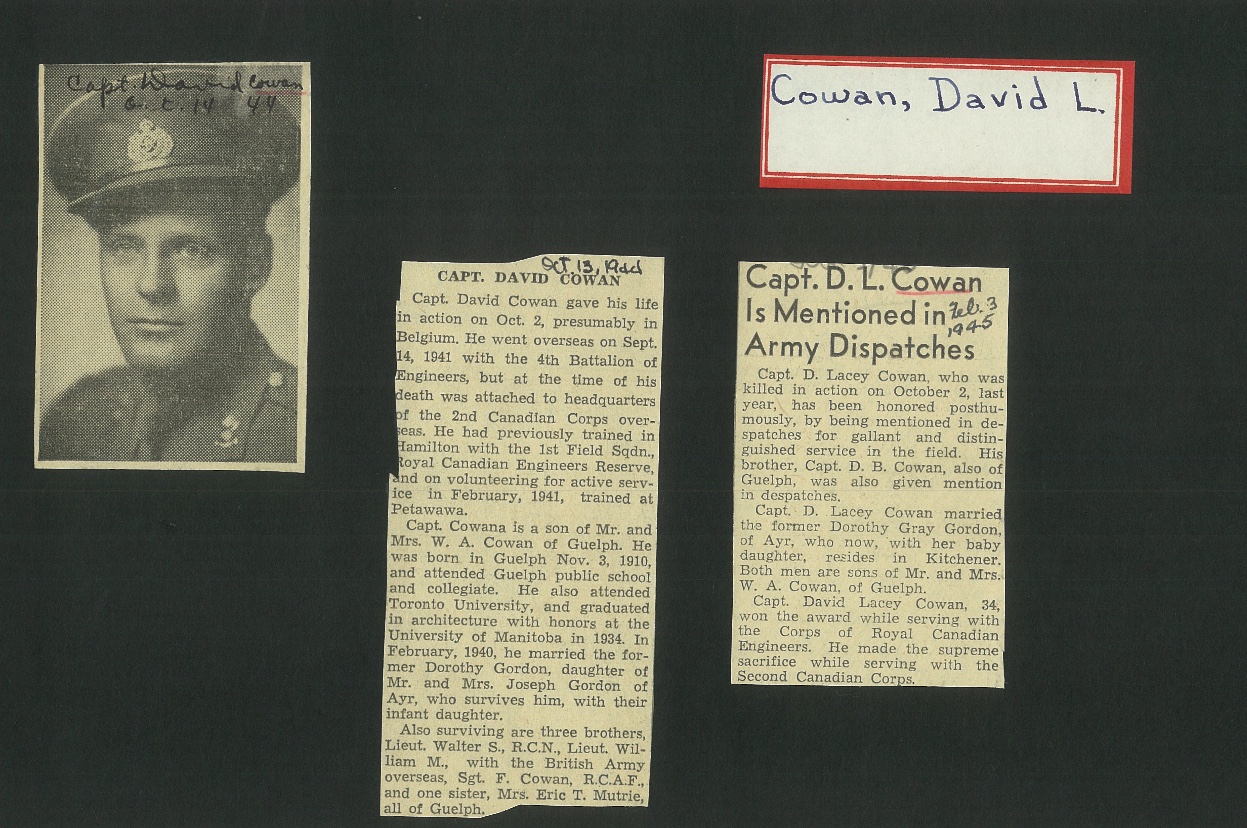 Capt. David Cowan
Oct. 14 44
Cowan, David L.
Oct. 13, 1944
CAPT. DAVID COWAN
Capt. David Cowan gave his life
in action on Oct. 2, presumably in
Belgium. He went overseas on Sept.
14, 1941 with the 4th Battalion of
Engineers, but at the time of his
death was attached to headquarters
of the 2nd Canadian Corps over-
seas. He had previously trained in
Hamilton with the 1st Field Sqdn.,
Royal Canadian Engineers Reserve,
and on volunteering for active serv-
ice in February, 1941, trained at
Petawawa.
Capt. Cowana is a son of Mr. and
Mrs. W. A. Cowan of Guelph. He
was born in Guelph Nov. 3, 1910,
and attended Guelph public school
and collegiate. He also attended
Toronto University, and graduated
in architecture with honors at the
University of Manitoba in 1934. In
February, 1940, he married the for-
mer Dorothy Gordon, daughter of
Mr. and Mrs. Joseph Gordon of
Ayr, who survives him, with their
infant daughter.
Also surviving are three brothers,
Lieut. Walter S., R.C.N., Lieut. Wil-
liam M., with the British Army
overseas, Sgt. F. Cowan, R.C.A.F.,
and one sister, Mrs. Eric T. Mutrie,
all of Guelph.
Capt. D. L. Cowan
Is Mentioned in
Army Dispatches
Feb. 3
1945
Capt. D. Lacey Cowan, who was
killed in action on October 2, last
year, has been honored posthu-
mously, by being mentioned in de-
spatches for gallant and distin-
guished service in the field. His
brother, Capt. D. B. Cowan, also of
Guelph, was also given mention
in despatches.
Capt. D. Lacey Cowan married
the former Dorothy Gray Gordon,
of Ayr, who now, with her baby
daughter, resides in Kitchener.
Both men are sons of Mr. and Mrs.
W. A. Cowan, of Guelph.
Capt. David Lacey Cowan, 34,
won the award while serving with
the Corps of Royal Canadian
Engineers. He made the supreme
sacrifice while serving with the
Second Canadian Corps.